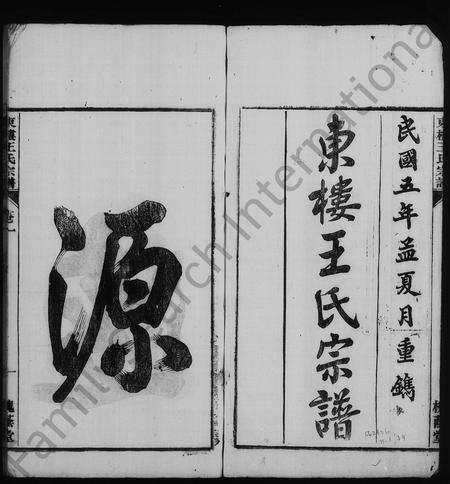 民國五年孟夏月重鐫
東樓王氏宗譜
東樓王氏宗譜
槐蔭堂
源
東樓王氏宗譜
卷九
槐蔭堂
FamilySearch International